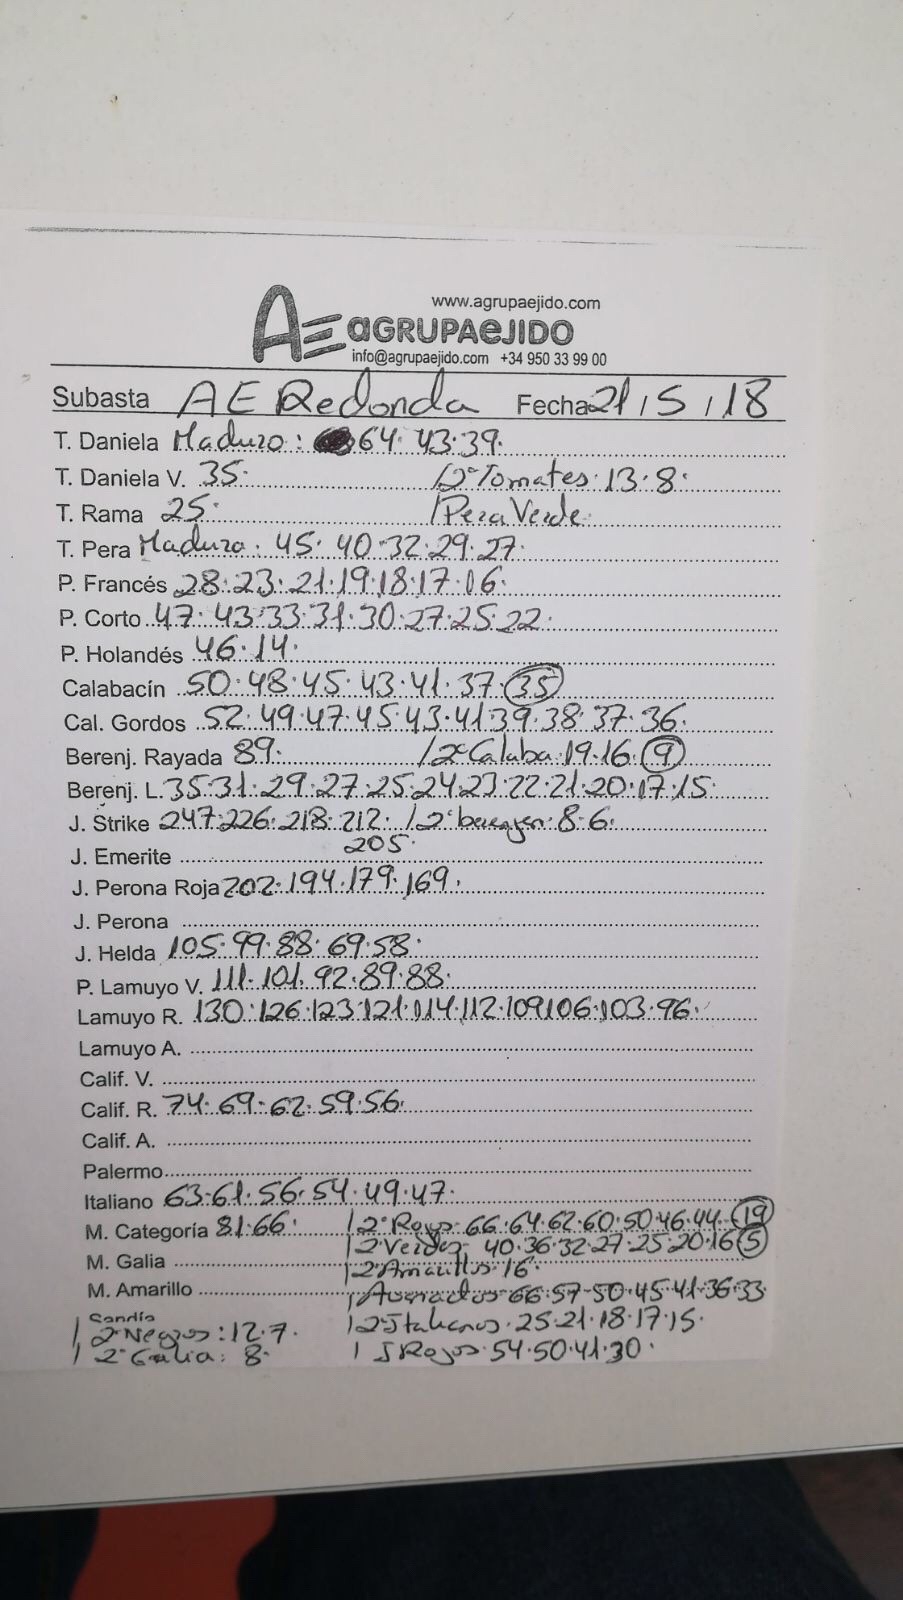 www.agrupaejido.com
AE aGRUPAeJIDO
info@agrupaejido.com +34 950 33 99 00
Subasta AE Redonda Fecha 21/5/18
T. Daniela Maduro: 64·43·39.
T. Daniela V. 35· /2ª Tomates·13·8·
T. Rama 25· /Pera Verde
T. Pera Madura. 45·40·32·29·27·
P. Francés 28·23·21·19·18·17·16·
P. Corto 47·43·33·31·30·27·25·22·
P. Holandés 46·14·
Calabacín 50·48·45·43·41·37·35
Cal. Gordos 52·49·47·45·43·41·39·38·37·36·
Berenj. Rayada 89· /2ª Calaba·19·16·9
Berenj. L. 35·31·29·27·25·24·23·22·21·20·17·15·
J. Strike 247·226·218·212· /2ª berenjen·8·6·
205·
J. Emerite
J. Perona Roja 202·194·179·169·
J. Perona
J. Helda 105·99·88·69·58·
P. Lamuyo V. 111·101·92·89·88·
Lamuyo R. 130·126·123·121·114·112·109·106·103·96·
Lamuyo A.
Calif. V.
Calif. R. 74·69·62·59·56·
Calif. A.
Palermo
Italiano 63·61·56·54·49·47·
M. Categoría 81·66· /2ª Rojos·66·64·62·60·50·46·44·19
/2 Verdes·40·36·32·27·25·20·16·5
M. Galia /2ª Amarillos·16·
M. Amarillo /Asurados·66·57·50·45·41·36·33·
Sandía
/2ª Negros:12·7· /2 Italianos·25·21·18·17·15·
/2ª Galia: 8· / J Rojos·54·50·41·30·